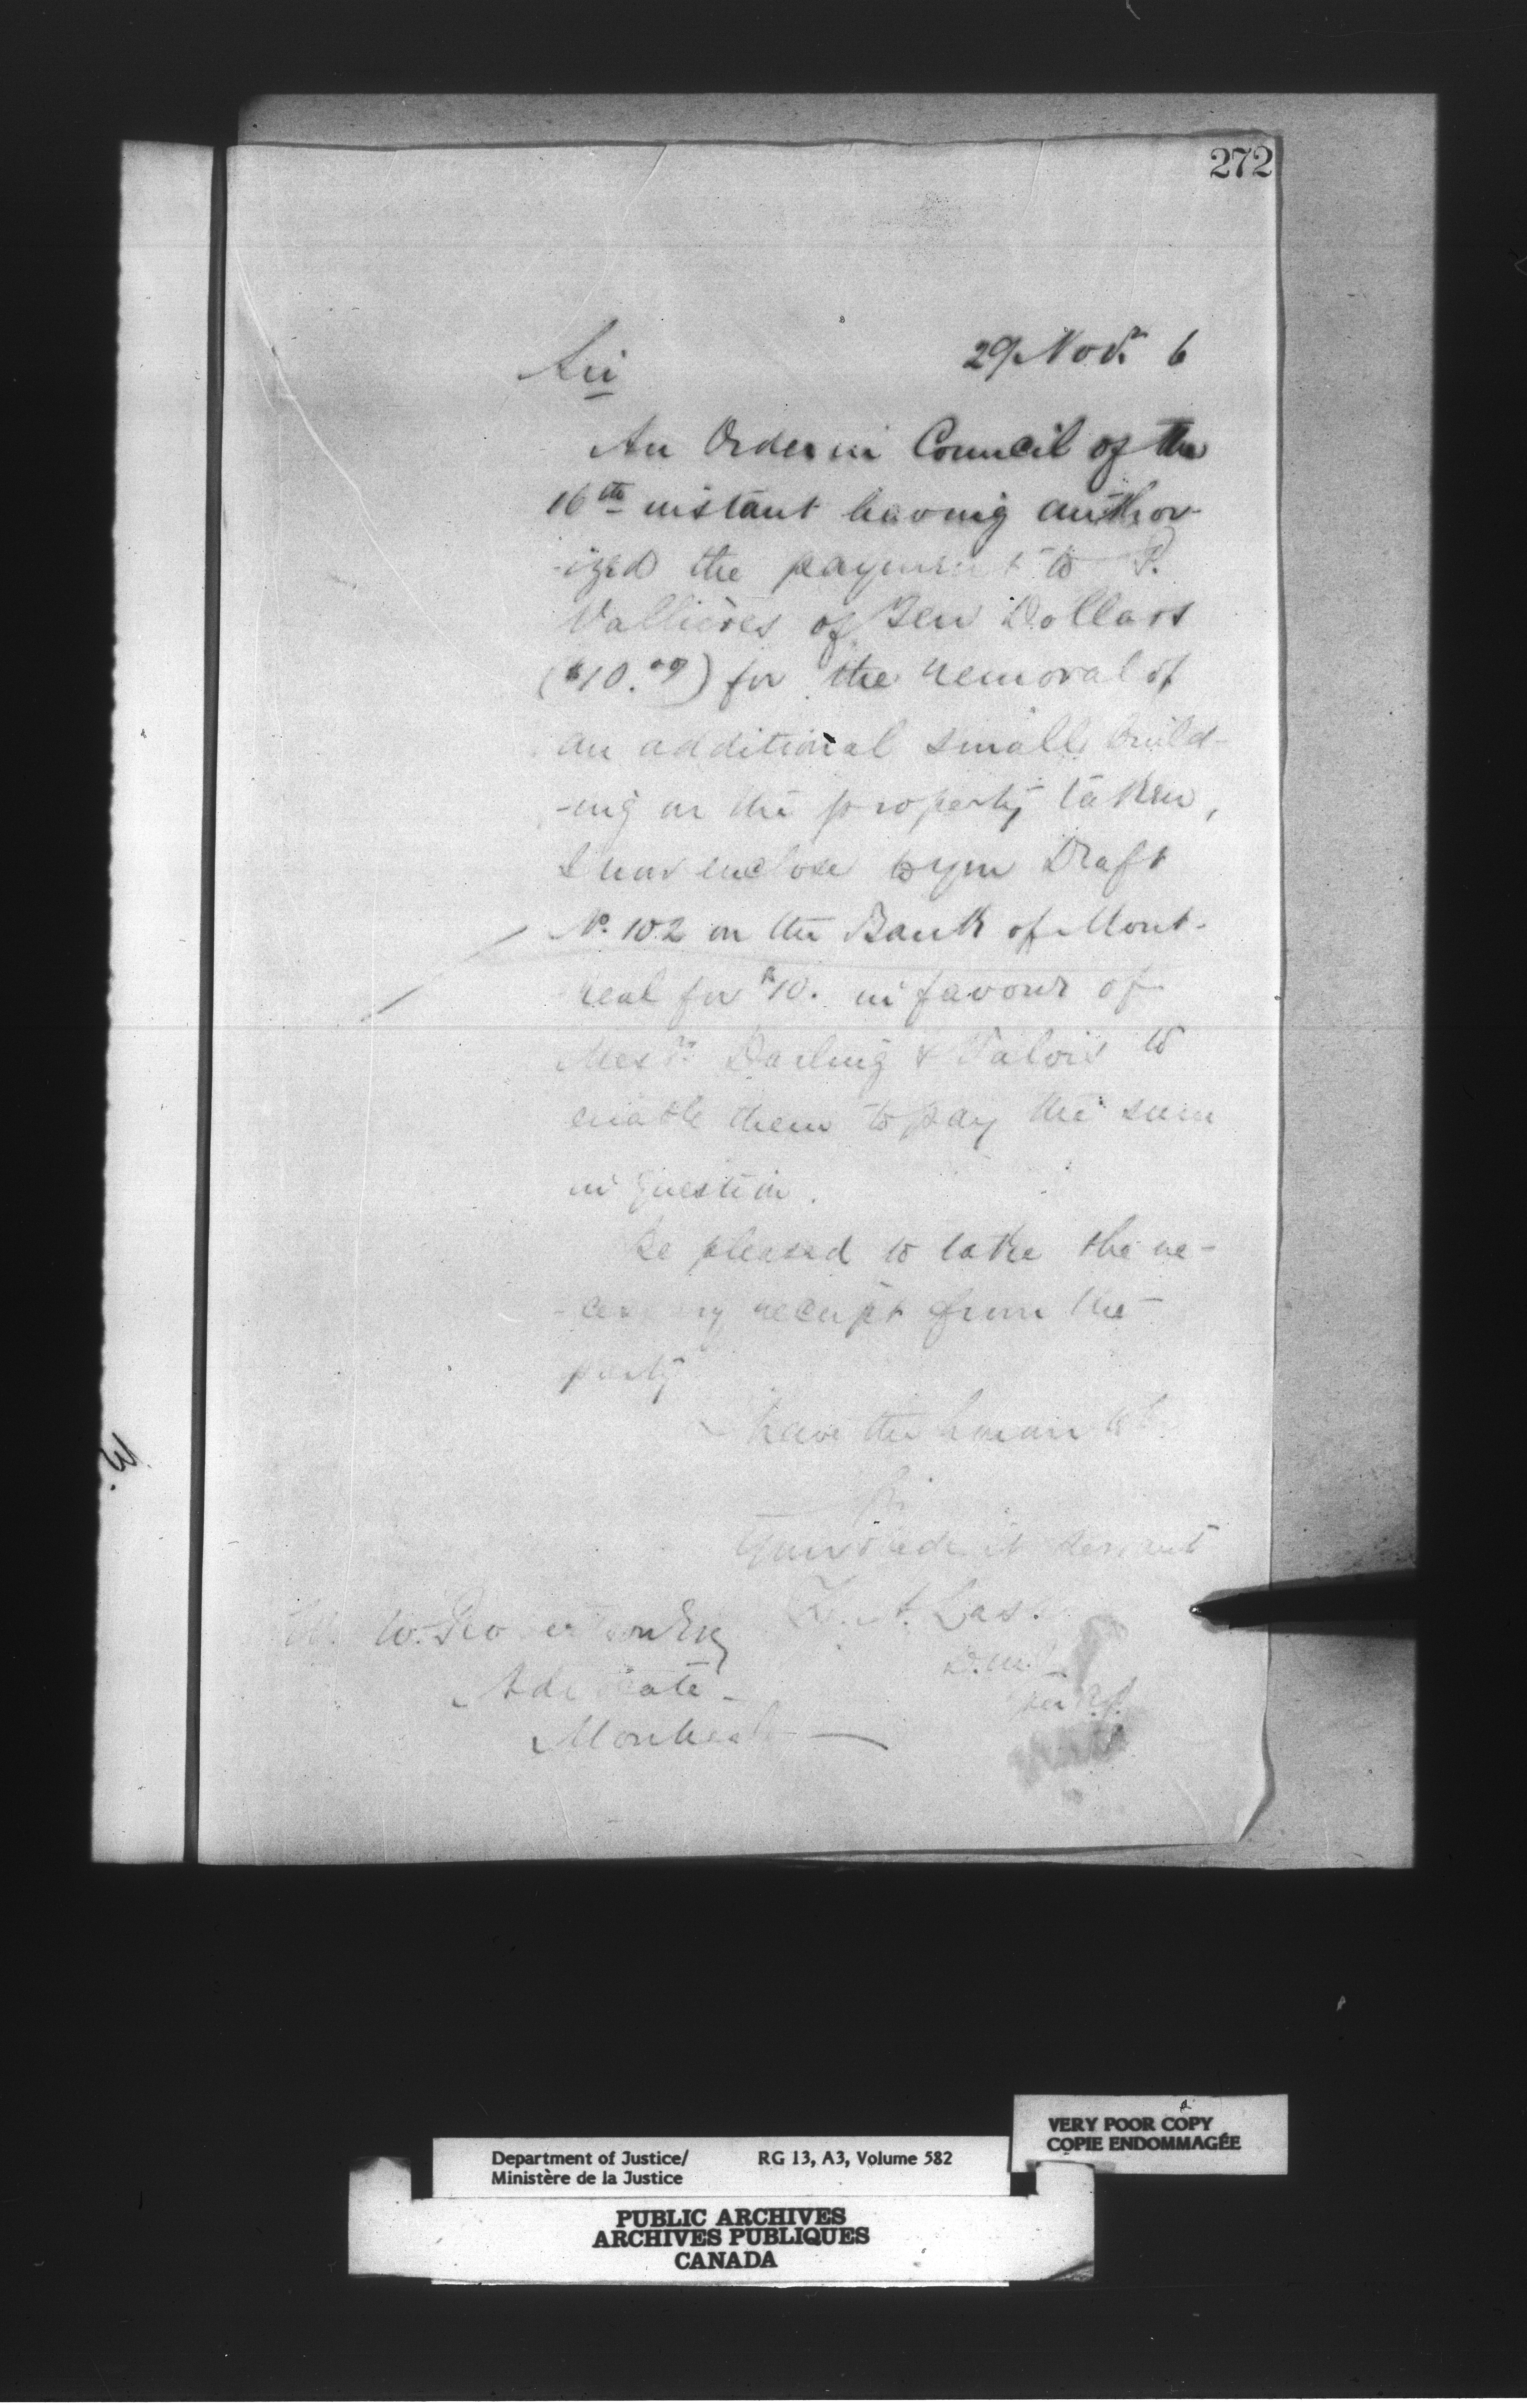 272
29 Nov. 6
Sir
An Order in Council of the
16th instant having author-
-ized the payment to P.
Vallières of Ten Dollars
($10.00) for the removal of
an additional small build-
-ing on the property taken,
I now enclose to you Draft
No. 102 on the Bank of Mont-
real for $10. in favour of
Messrs Darling & Valois to
enable them to pay the sum
in question.
Be pleased to take the ne-
-cessary receipt from the
party
I have the honour to be
Sir
Your obedient servant
Z. A. Lash
D.M.J.
per
W. W. Robertson Esq
Advocate -
Montreal
VERY POOR COPY
COPIE ENDOMMAGÉE
Department of Justice/ RG 13, A3, Volume 582
Ministère de la Justice
PUBLIC ARCHIVES
ARCHIVES PUBLIQUES
CANADA